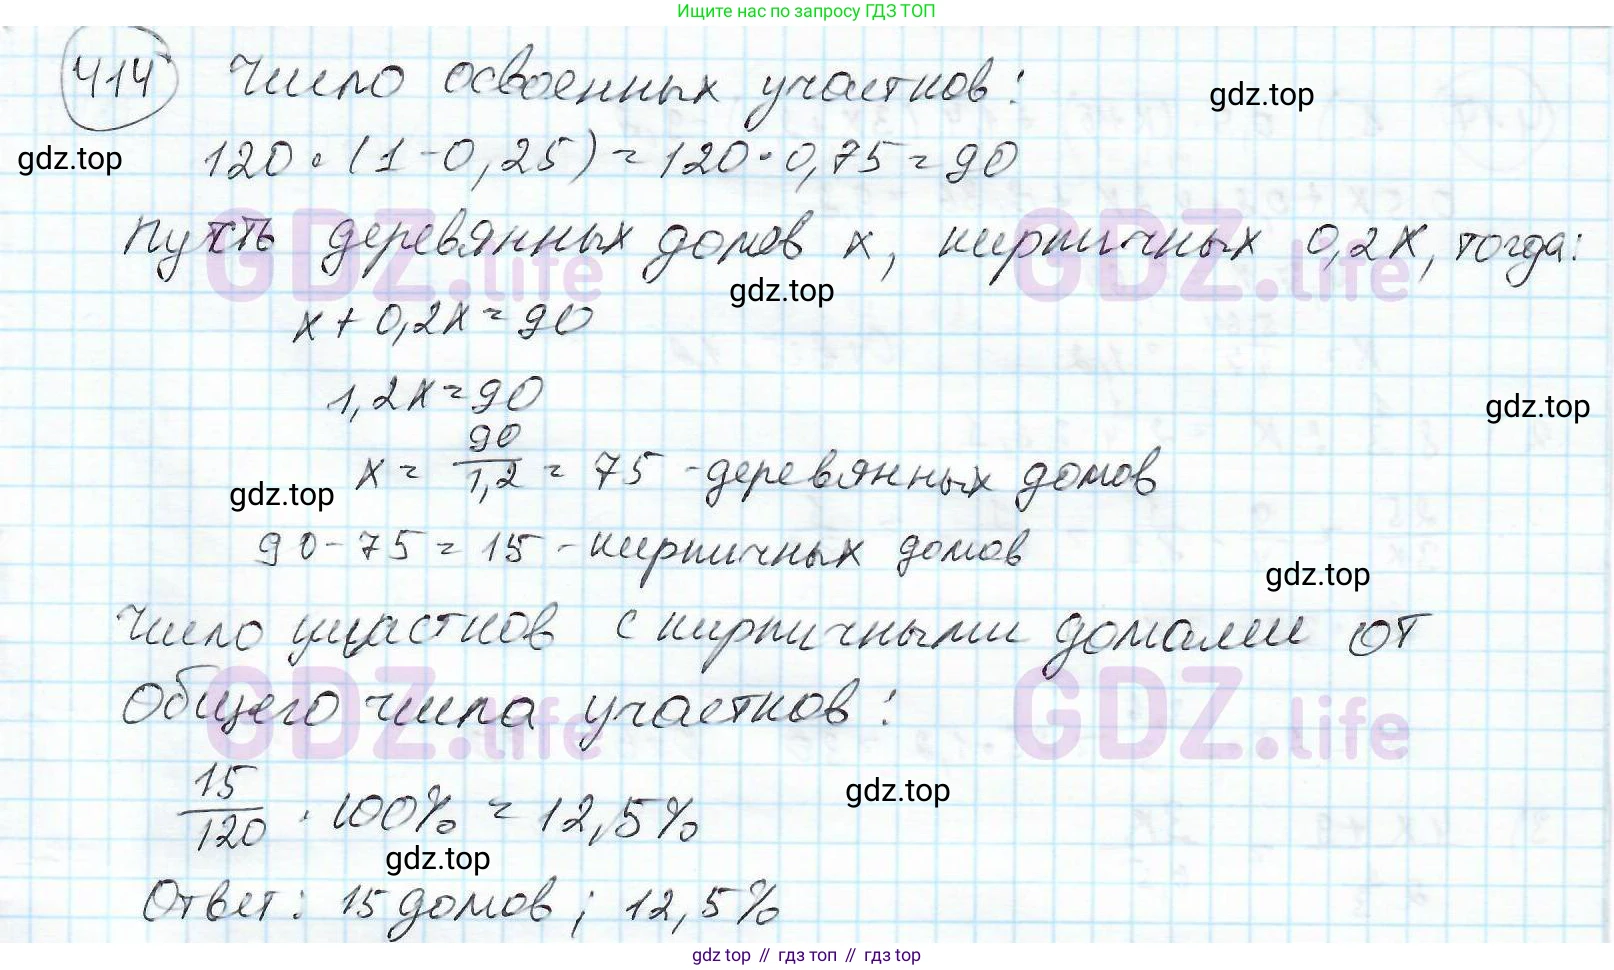 Ищите нас по запросу ГДЗ ТОП
414 Число освоенных участков:
gdz.top
gdz.top
120 · (1 - 0,25) = 120 · 0,75 = 90
Пусть деревянных домов х, кирпичных 0,2х, тогда:
GDZ.life
GDZ.life
gdz.top
х + 0,2х = 90
1,2х = 90
gdz.top
х = 90/1,2 = 75 - деревянных домов
gdz.top
90 - 75 = 15 - кирпичных домов
gdz.top
Число участков с кирпичными домами от
общего числа участков:
GDZ.life
GDZ.life
15/120 · 100% = 12,5%
gdz.top
gdz.top
Ответ: 15 домов; 12,5%
gdz top // гдз топ // гдз top